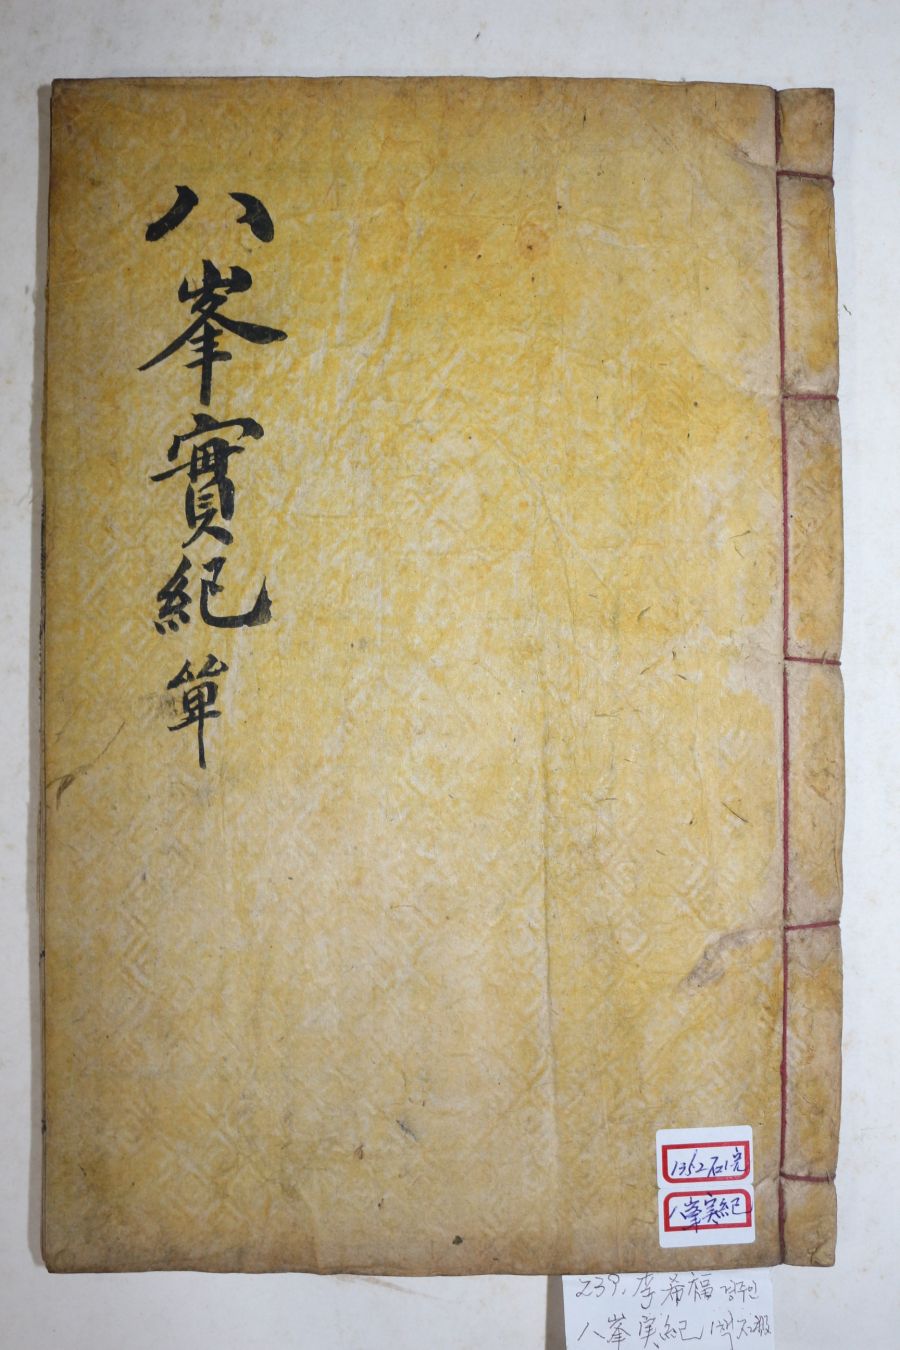 八峯實紀 單
1352 石1完
八峯実紀
239. 李希福
八峯実紀 1책 石版